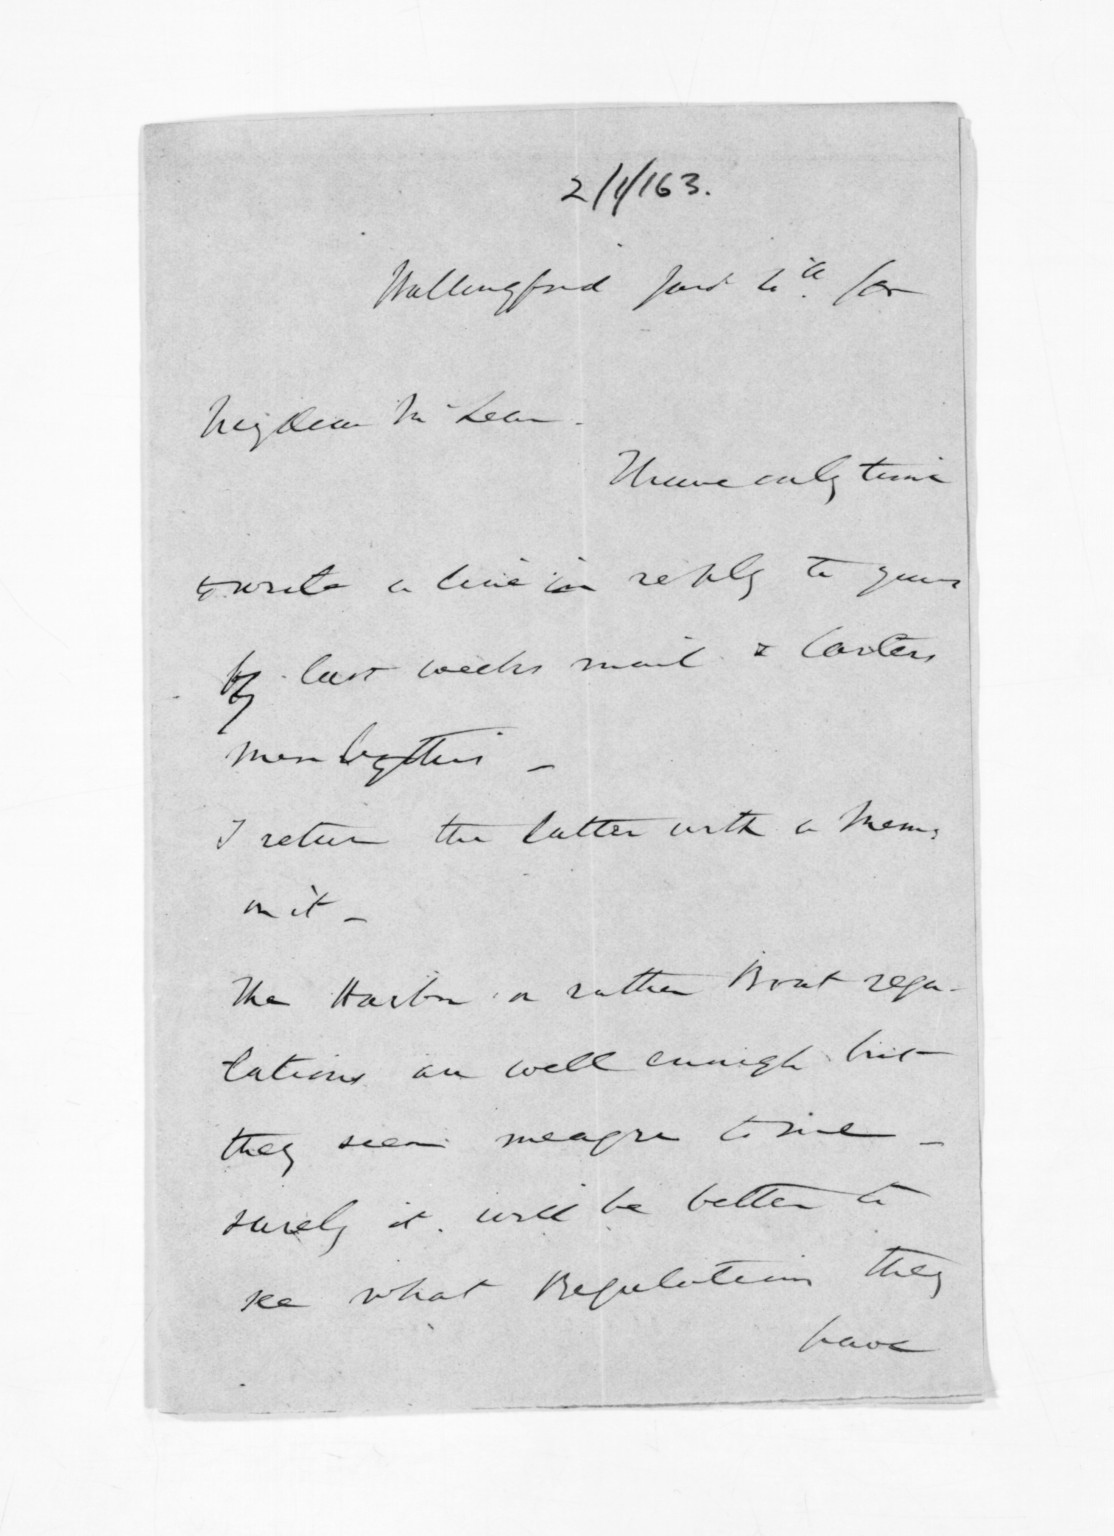 2/1/163.
Wallingford
My dear McLean.
I have only time
to write a line in reply to yours
by last weeks mail & Carters
by this -
I return the latter with a Memo
on it -
The Harbor or rather Boat regu-
lations are well enough but
they seem meagre to me -
surely it will be better to
see what Regulations they
have